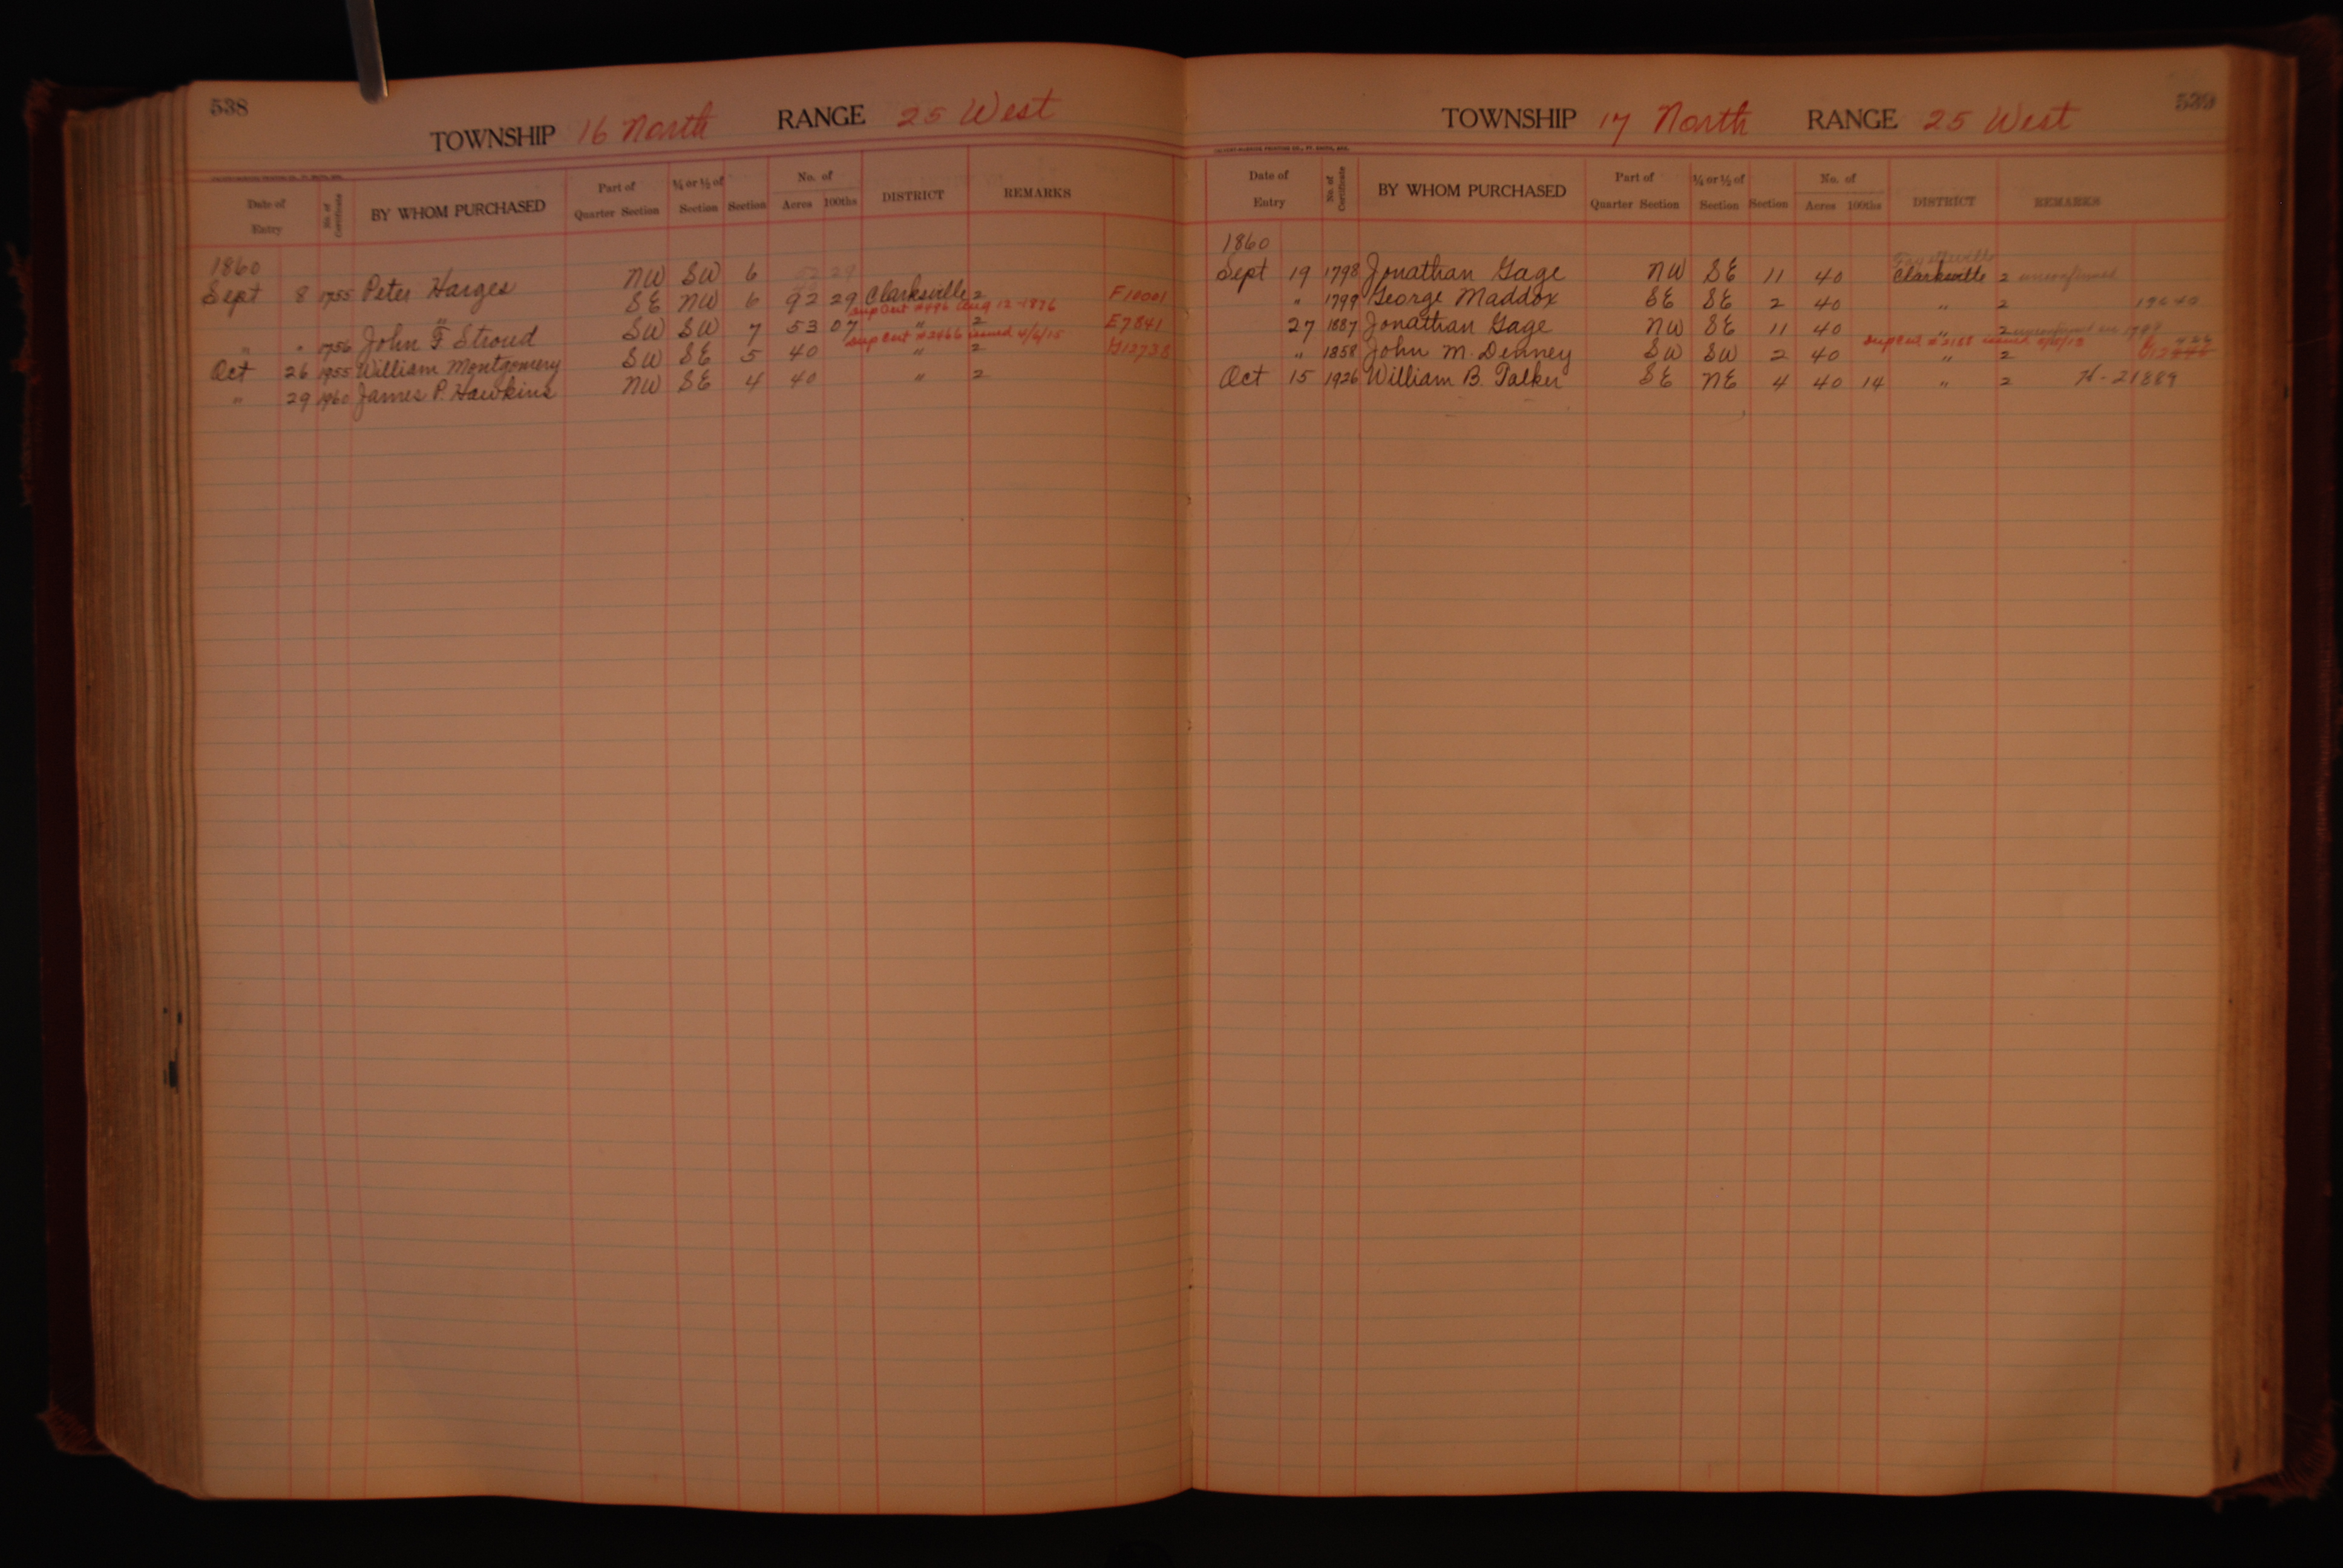 538
TOWNSHIP 16 North RANGE 25 West
Date of Entry No. of Certificate BY WHOM PURCHASED Part of Quarter Section ¼ or ½ of Section Section No. of Acres 100ths DISTRICT REMARKS
1860
Sept 8 1755 Peter Harges NW SW 6
" SE NW 6 92 29 Clarksville 2 F10001
Dup Cert #496 Aug 12-1876
" " 1756 John F Stroud SW SW 7 53 07 " 2 E7841
Dup Cert #2466 issued 4/6/15
Oct 26 1955 William Montgomery SW SE 5 40 " 2 G12738
" 29 1960 James P. Hawkins NW SE 4 40 " 2
539
TOWNSHIP 17 North RANGE 25 West
Date of Entry No. of Certificate BY WHOM PURCHASED Part of Quarter Section ¼ or ½ of Section Section No. of Acres 100ths DISTRICT REMARKS
1860
Fayetteville
Sept 19 1798 Jonathan Gage NW SE 11 40 Clarksville 2 unconfirmed
" 1799 George Maddox SE SE 2 40 " 2
27 1887 Jonathan Gage NW SE 11 40 " 2 unconfirmed
Dup Cert #2188 issued
" 1858 John M. Denney SW SW 2 40 " 2
Oct 15 1926 William B. Talker SE NE 4 40 14 " 2 H-21889